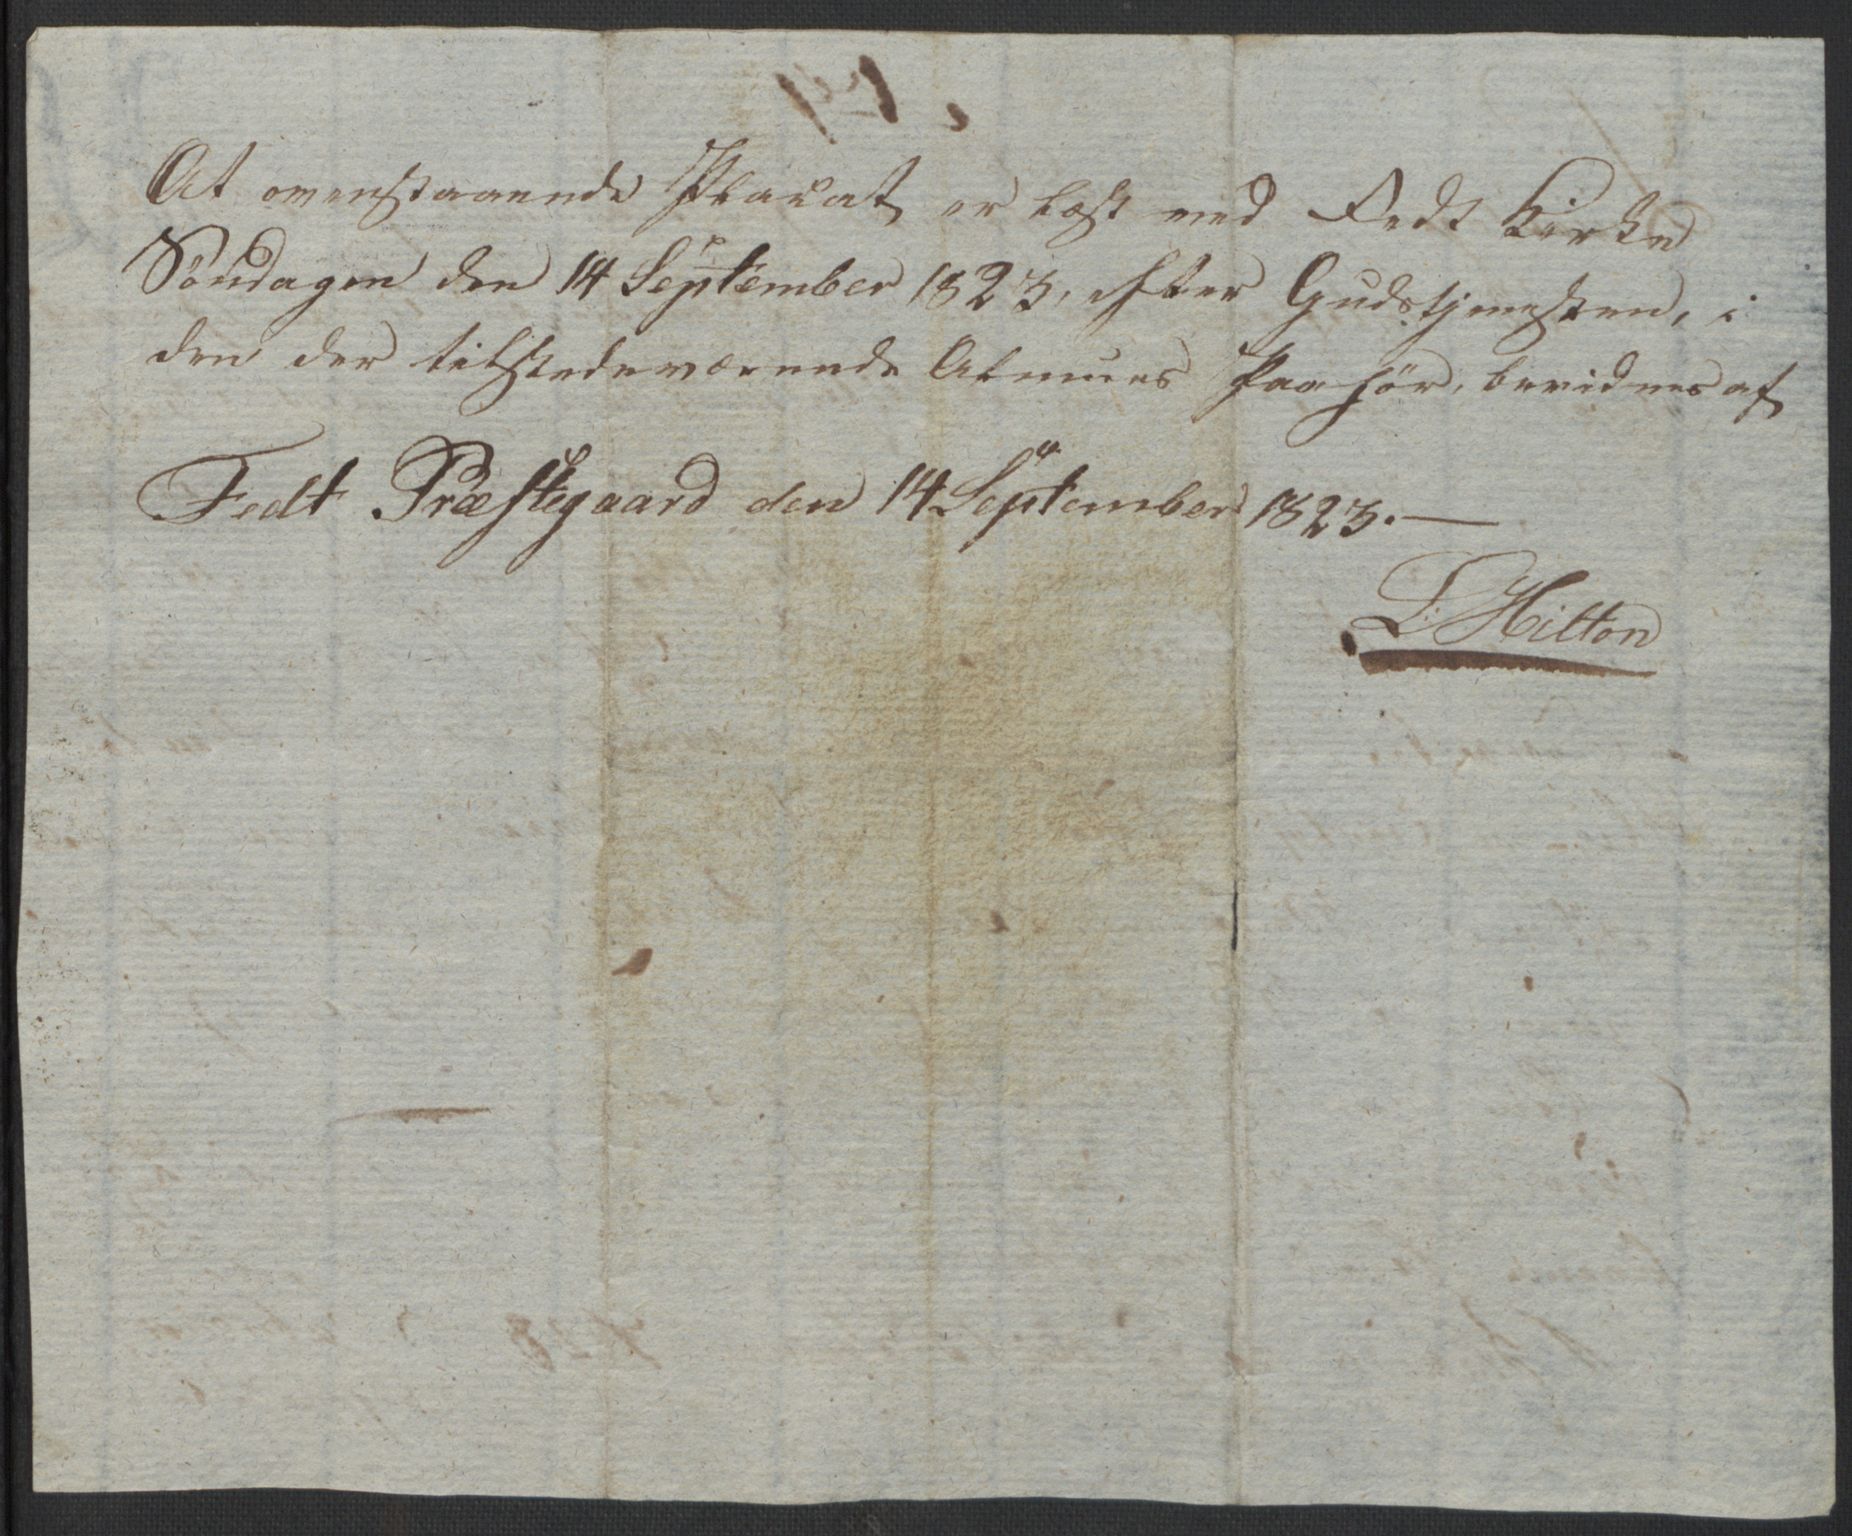 At ovenstaaende Placat er læst ved Fedt Kirke
Søndagen den 14 September 1823, efter Gudstjenesten, i
den der tilstedeværende Almues Paahør, bevidnes af
Fedt Præstegaard den 14 September 1823.—
L: Hilton